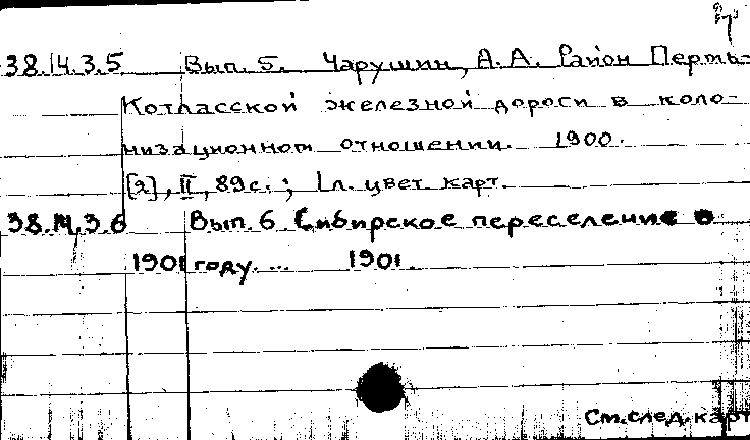 38.14.3.5 Вып. 5. Чарушин, А. А. Район Пермь-
Котласской железной дороги в коло-
низационном отношении. 1900.
[2], II, 89 с.; 1 л. цвет. карт.
38.14.3.6 Вып. 6 Сибирское переселение в
1901 году. ... 1901.
См. след. карт